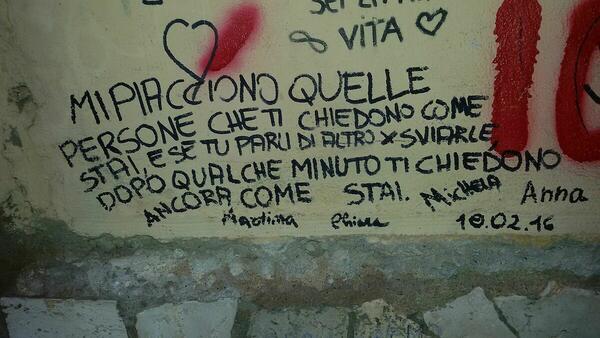 VITA
MI PIACCIONO QUELLE
PERSONE CHE TI CHIEDONO COME
STAI, E SE TU PARLI DI ALTRO X SVIARLE
DOPO QUALCHE MINUTO TI CHIEDONO
ANCORA COME STAI.
Michela Anna
Martina Chiara 10.02.16